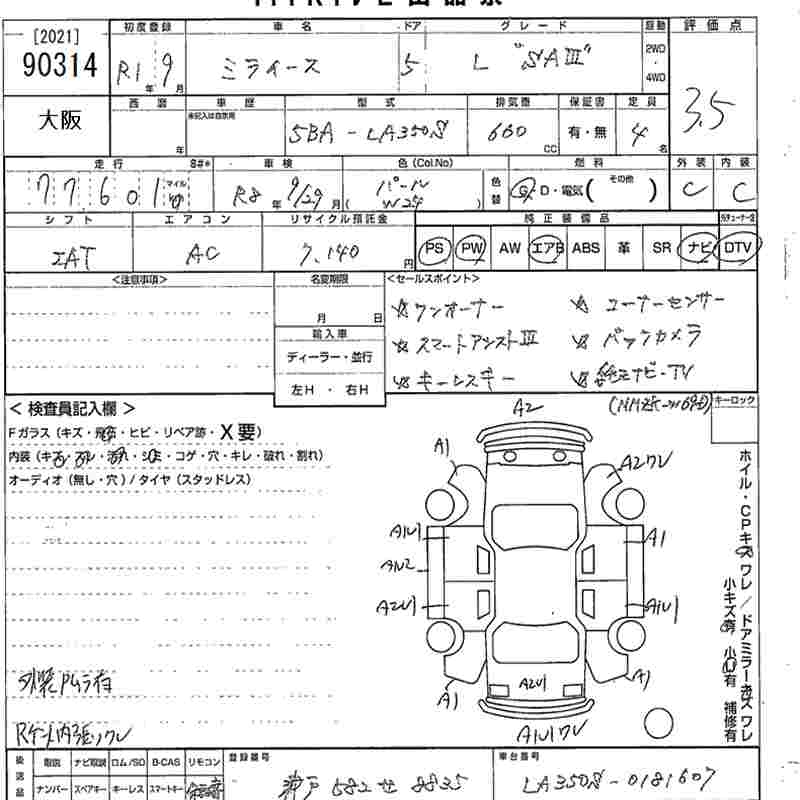 [2021]
90314
初度登録 車名 ドア グレード 駆動 評価点
R1年9月 ミライース 5 L "SAⅢ" 2WD・4WD 3.5
大阪
西暦 車歴 型式 排気量 保証書 定員
年 未記入は自家用 5BA-LA350S 660cc 有・無 4名
走行 車検 色(Col.No) 燃料 外装 内装
77601 マイル km R8年9/29月 パール W24 色替 G・D・電気( その他 ) C C
シフト エアコン リサイクル預託金 純正装備品
IAT AC 7,140円 PS PW AW エアB ABS 革 SR ナビ DTV
<注意事項> 名変期限 <セールスポイント>
月 日 ☆ワンオーナー ☆コーナーセンサー
輸入車 ☆スマートアシストⅢ ☆バックカメラ
ディーラー・並行
左H・右H ☆キーレスキー ☆純正ナビ・TV
(NMZK-W69D) キーロック
< 検査員記入欄 >
Fガラス(キズ・飛石・ヒビ・リペア跡・X要)
内装(キズ・スレ・汚れ・シミ・コゲ・穴・キレ・破れ・割れ)
オーディオ(無し・穴)/タイヤ(スタッドレス)
A2
A1 A2ワレ
A1U1 A1
A1U2
A2U1 A1U1
A1 A2U1 A1
A1U1ワレ
ホイル・CPキズ ワレ/ドアミラーキズ ワレ
小キズ有 小凹有 補修有
外装ムラ有
Rゲート内張りワレ
後送品 取説 ナビ取説 ロム/SD B-CAS リモコン 登録番号 車台番号
ナンバー スペアキー キーレス スマートキー 神戸 582 せ 8835 LA350S-0181607